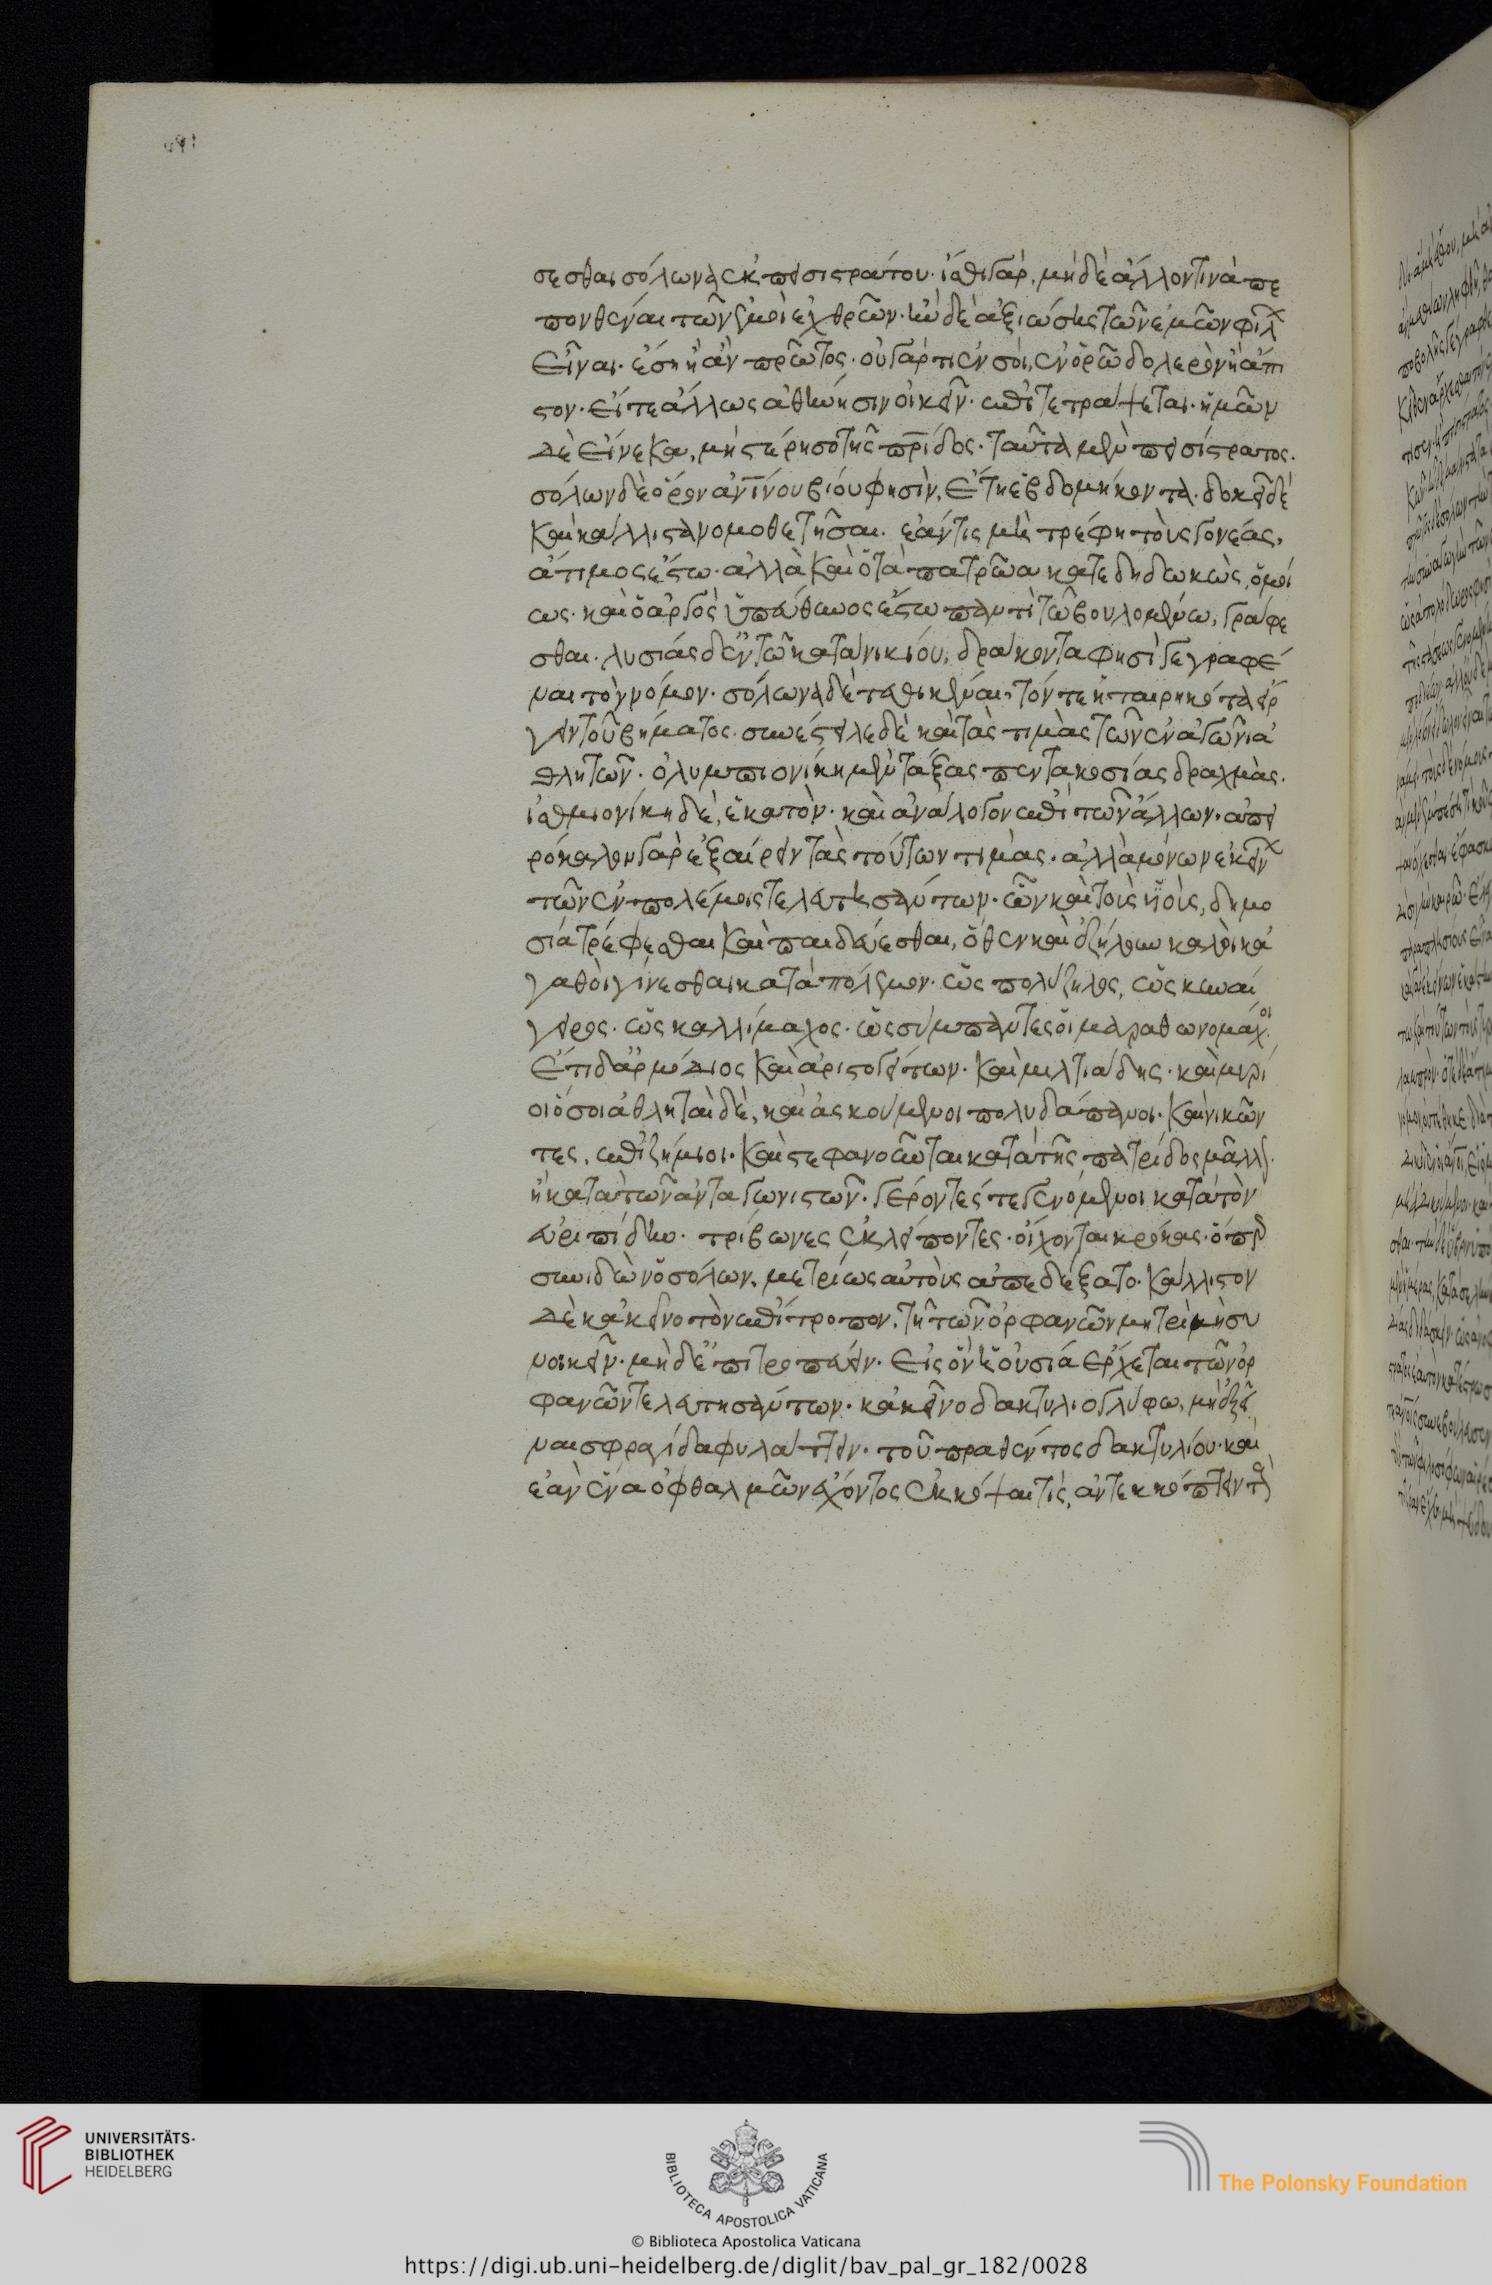 σεσθαι σόλωνα ἐκ πεισιστράτου· ἴσθι γὰρ, μὴ δὲ ἄλλον τινὰ πε
πονθέναι τῶν ἐμοὶ ἐχθρῶν· ἢν δὲ ἀξιώσης τῶν ἐμῶν φίλ
εἶναι· ἔση ἀν πρῶτος· οὐ γάρ τι ἐν σοὶ, ἐνορῶ δολερὸν ἢ ἄπι
στον· εἴτε ἄλλως ἀθήνησιν οἰκεῖν· ἐπιτετράψεται· ἡμῶν
δὲ εἵνεκα, μὴ στέρησο τῆς πρίδος· ταῦτα μὲν πεισίστρατος·
σόλων δὲ ὅρον ἀνίνου βίου φησὶν, ἔτη ἑβδομήκοντα· δοκεῖ δὲ
καὶ κάλλιστα νομοθετῆσαι· ἐάν τις μὴ τρέφη τοὺς γονέας,
ἄτιμος ἔστω· ἀλλὰ καὶ ὁ τὰ πατρῶα κατεδηδωκὼς, ὁμοί
ως· καὶ ὁ ἀργὸς ὑπεύθυνος ἔστω παντὶ τῶ βουλομένω, γράφε
σθαι· λυσίας δ' ἐν τῶ κατὰ νικίου, δράκοντα φησὶ γεγραφέ
ναι τὸν νόμον· σόλωνα δὲ τεθεικέναι, τόν τε ἡταιρηκότα εἴρ
γειν τοῦ βήματος· συνέστειλε δὲ καὶ τὰς τιμὰς τῶν ἐν ἀγῶνι ἀ
θλητῶν· ὀλυμπιονίκη μὲν τάξας πεντακοσίας δραχμὰς·
ἰσθμιονίκη δὲ, ἑκατὸν· καὶ ἀνάλογον ἐπὶ τῶν ἄλλων· ἀπει
ρόκαλον γὰρ ἐξαίρειν τὰς τούτων τιμὰς· ἀλλὰ μόνων ἐκείν
τῶν ἐν πολέμοις τελευτησάντων· ὧν καὶ τοὺς ὑοὺς, δημο
σία τρέφεσθαι καὶ παιδεύεσθαι, ὅθεν καὶ ἐζήλουν καλοὶ κἀ
γαθοὶ γίνεσθαι κατὰ πόλεμον· ὡς πολύζηλος, ὡς κυναί
γειρος· ὡς καλλίμαχος· ὡς σύμπαντες οἱ μαραθωνομάχοι
ἔτι δ' ἁρμόδιος καὶ ἀριστογείτων· καὶ μιλτιάδης· καὶ μυρί
οι ὅσοι ἀθληταὶ δὲ, καὶ ἀσκούμενοι πολυδάπανοι· καὶ νικῶν
τες, ἐπιζήμιοι· καὶ στεφανοῦνται κατὰ τῆς πατρίδος μᾶλλ
ἢ κατὰ τῶν ἀνταγωνιστῶν· γέροντές τε γενόμενοι κατὰ τὸν
εὐριπίδην· τρίβωνες ἐκλείποντες· οἴχονται κρόκας· ὅπερ
συνιδὼν ὁ σόλων, μετρίως αὐτοὺς ἀπεδέξατο· κάλλιστον
δὲ κἀκεῖνο τὸν ἐπίτροπον, τῆ τῶν ὀρφανῶν μητρὶ μὴ συ
νοικεῖν· μὴ δ' ἐπιτροπεύειν· εἰς ὃν ἡ οὐσία ἔρχεται τῶν ὀρ
φανῶν τελευτησάντων· κἀκεῖνο δακτυλιογλύφω, μὴ ἐξεῖ
ναι σφραγίδα φυλάττειν· τοῦ πραθέντος δακτυλίου· καὶ
ἐὰν ἕνα ὀφθαλμὸν ἔχοντος ἐκκόψαι τὶς, ἀντεκκόπτειν τ
UNIVERSITÄTS-
BIBLIOTHEK
HEIDELBERG
BIBLIOTECA APOSTOLICA VATICANA
The Polonsky Foundation
© Biblioteca Apostolica Vaticana
https://digi.ub.uni-heidelberg.de/diglit/bav_pal_gr_182/0028